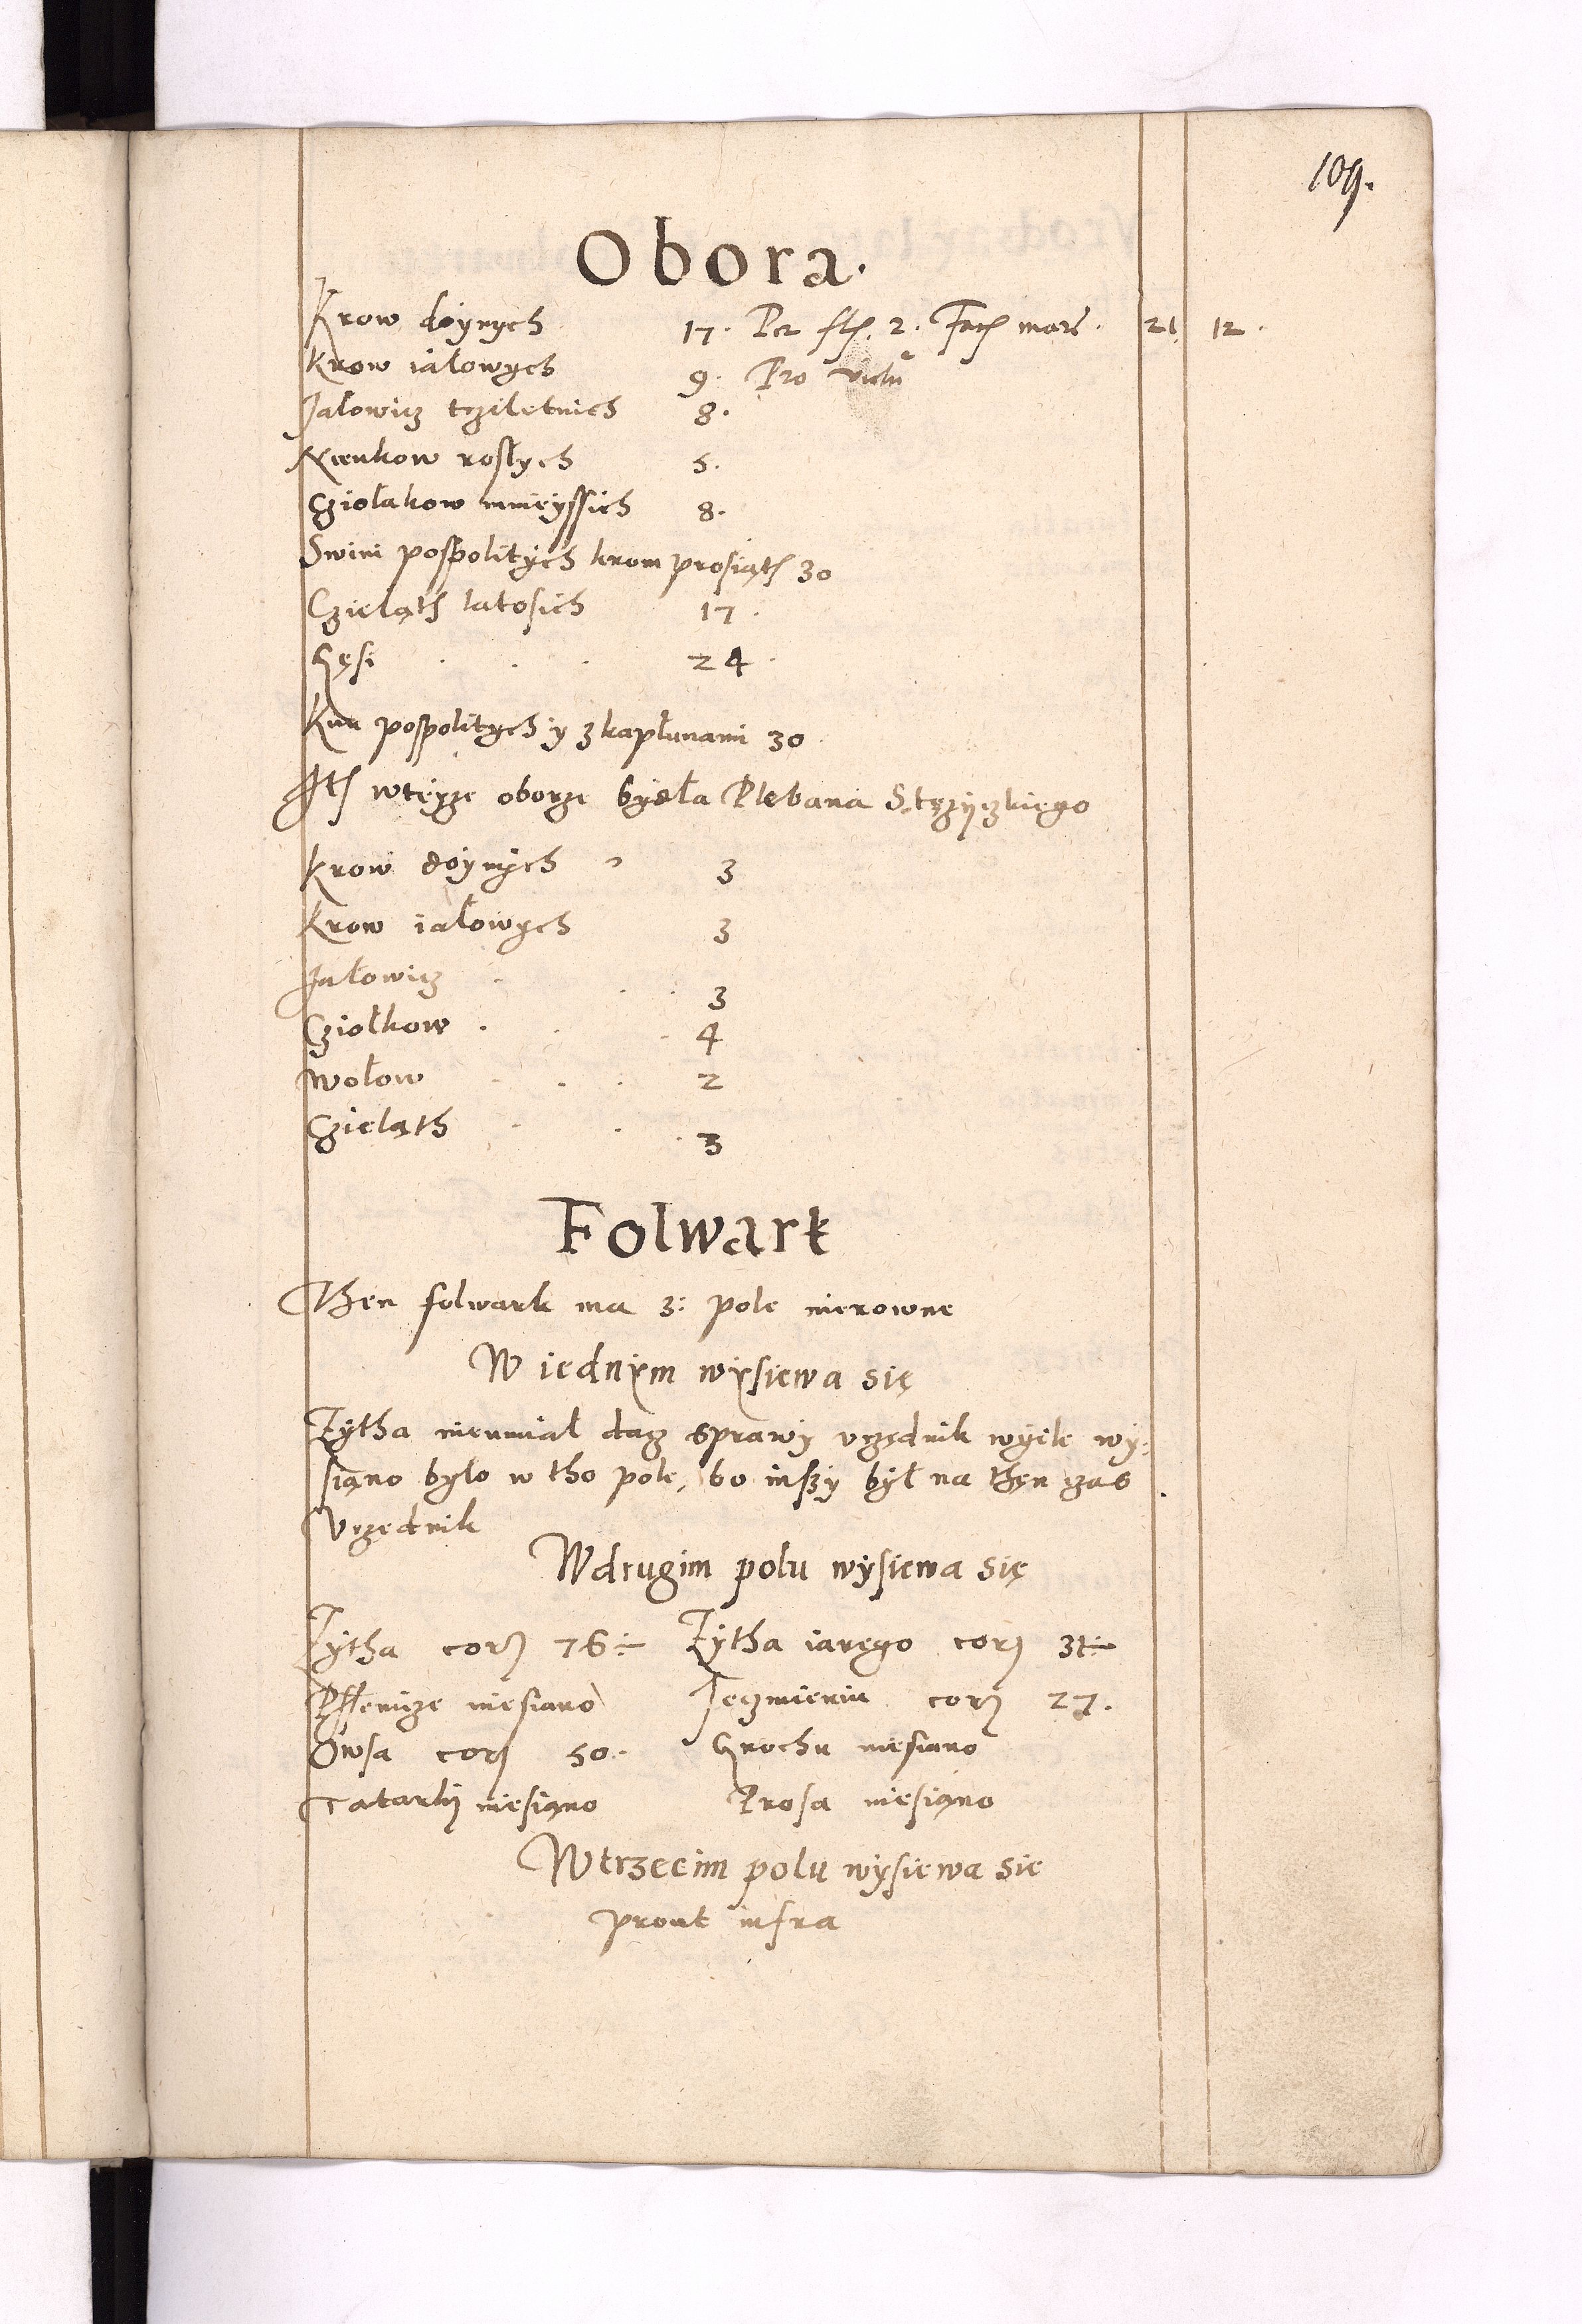 109.
Obora.
Krow doynych 17. Per flо. 2. Fac marc. 21 12.
Krow iałowych 9. Pro victu
Jałowicz trziletnich 8.
rosłych 5.
Cziołakow mnieyssich 8.
Swini pospolitych krom prosiąth 30
Czieląth latosich 17.
Gęsi 24.
Kur pospolitych y z kapłunami 30
Ith wteyze oborze bydła Plebana Stęzyczkiego
Krow doynych 3
Krow iałowych 3
Jałowicz 3
Cziołkow 4
Wołow 2
Czieląth 3
Folwark
Then folwark ma 3: pole nierowne
W iednym wysiewa się
Zytha nieumiał dacz sprawy vrzędnik wyiele wy:
siąno było w tho pole, bo inszy był na then czas
Vrzednik
Wdrugim polu wysiewa się
Zytha cor 76÷ Zytha iarego cor 31÷
Pssenicze niesiano Jeczmieniu cor 27.
Owsa cor 50. Grochu niesiano
Tatarky niesiąno Prosa niesiąno
Wtrzecim polu wysiewa sie
prout infra